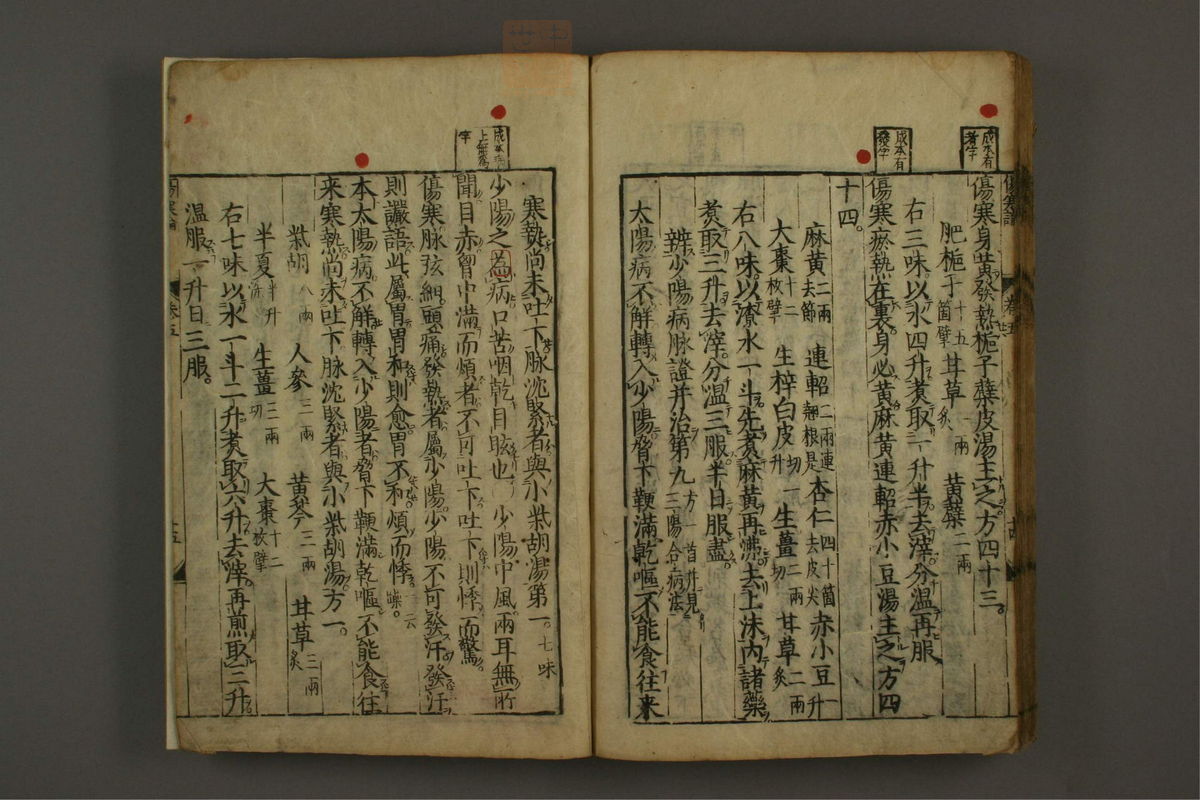 成本有
者字
傷寒身黃發熱梔子蘗皮湯主之方四十三。
肥梔子十五箇擘 甘草一兩炙 黃蘗二兩
右三味。以水四升煮取一升半。去滓。分溫再服
成本有
發字
傷寒瘀熱在裏。身必黃。麻黃連軺赤小豆湯主之方四
十四。
麻黃二兩去節 連軺二兩連翹根是 杏仁四十箇去皮尖 赤小豆一升
大棗十二枚擘 生梓白皮切一升 生薑二兩切 甘草二兩炙
右八味。以潦水一斗。先煮麻黃再沸。去上沫。內諸藥。
煮取三升。去滓。分溫三服。半日服盡。
辨少陽病脉證并治第九 方一首并見三陽合病法
太陽病不解。轉入少陽。脅下鞕滿。乾嘔不能食。往來
寒熱。尚未吐下。脉沈緊者。與小柴胡湯第一。七味
少陽之為病。口苦咽乾目眩也 ○ 少陽中風。兩耳無所
聞。目赤。胷中滿而煩者。不可吐下。吐下則悸而驚。
傷寒。脉弦細。頭痛發熱者。屬少陽。少陽不可發汗。發汗
則讝語。此屬胃。胃和則愈。胃不和。煩而悸。一云躁。
本太陽病不解。轉入少陽者。脅下鞕滿。乾嘔不能食。往
來寒熱。尚未吐下。脉沈緊者。與小柴胡湯方一。
柴胡八兩 人參三兩 黃芩三兩 甘草三兩炙
半夏半升洗 生薑三兩切 大棗十二枚擘
右七味。以水一斗二升。煮取六升。去滓。再煎取三升。
溫服一升。日三服。
傷寒論 卷五